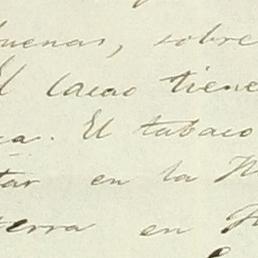 buenas, sobre
El cacao tiene
ca. El tabaco
tar en la
terra en